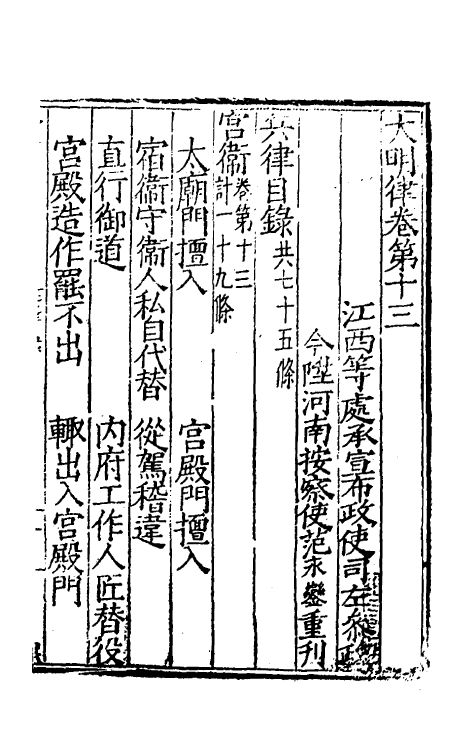 大明律卷第十三
江西等處承宣布政使司左參政
今陞河南按察使范永鑾重刊
兵律目錄共七十五條
宮衛卷第十三計一十九條
太廟門擅入 宮殿門擅入
宿衛守衛人私自代替 從駕稽違
直行御道 內府工作人匠替役
宮殿造作罷不出 輒出入宮殿門